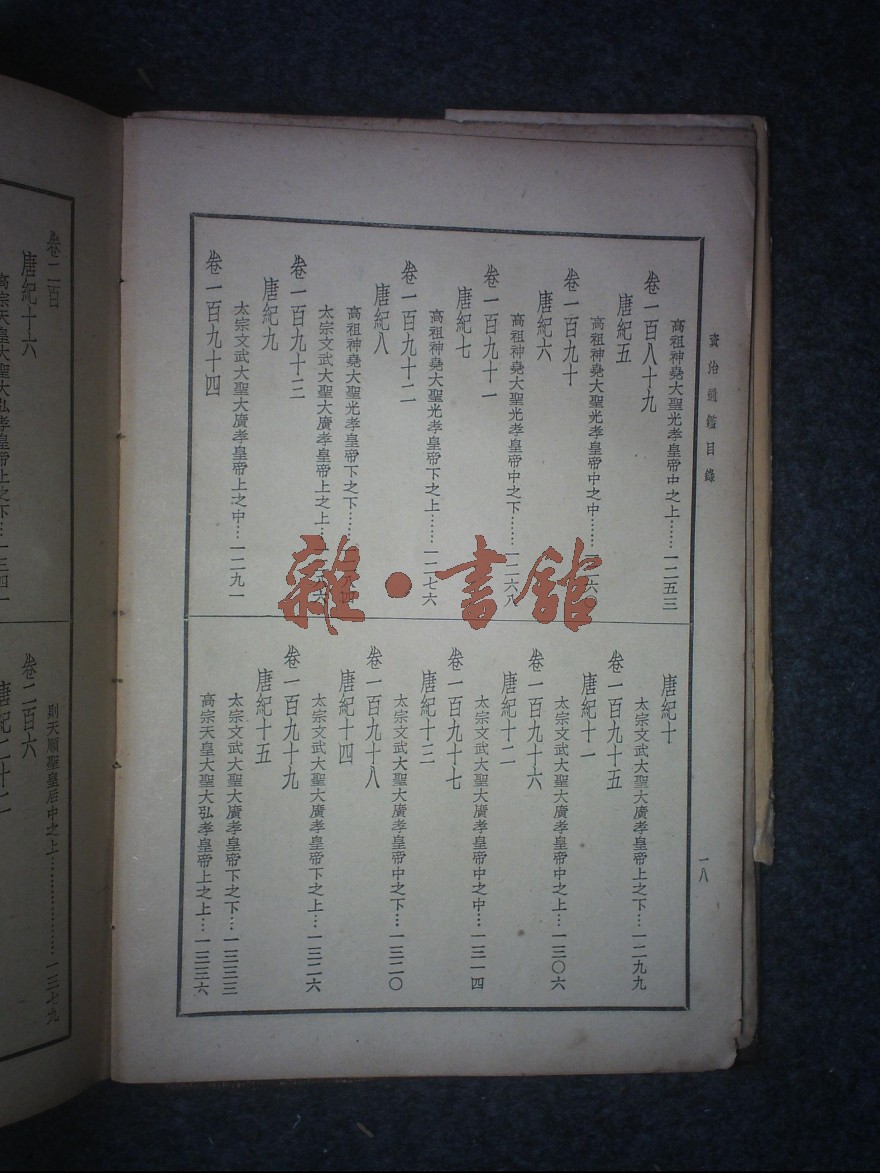 資治通鑑目錄
高祖神堯大聖光孝皇帝中之上……一二五三
卷一百八十九
唐紀五
高祖神堯大聖光孝皇帝中之中……
卷一百九十
唐紀六
高祖神堯大聖光孝皇帝中之下……一二六八
卷一百九十一
唐紀七
高祖神堯大聖光孝皇帝下之上……一二七六
卷一百九十二
唐紀八
高祖神堯大聖光孝皇帝下之下……
太宗文武大聖大廣孝皇帝上之上…
卷一百九十三
唐紀九
太宗文武大聖大廣孝皇帝上之中…一二九一
卷一百九十四
唐紀十
太宗文武大聖大廣孝皇帝上之下…一二九九
卷一百九十五
唐紀十一
太宗文武大聖大廣孝皇帝中之上…一三〇六
卷一百九十六
唐紀十二
太宗文武大聖大廣孝皇帝中之中…一三一四
卷一百九十七
唐紀十三
太宗文武大聖大廣孝皇帝中之下…一三二〇
卷一百九十八
唐紀十四
太宗文武大聖大廣孝皇帝下之上…一三二六
卷一百九十九
唐紀十五
太宗文武大聖大廣孝皇帝下之下…一三三三
高宗天皇大聖大弘孝皇帝上之上…一三三六
一八
卷二百
唐紀十六
高宗天皇大聖大弘孝皇帝上之下…一三四一
則天順聖皇后中之上………………一三七九
卷二百六
唐紀二十二
雜·書館